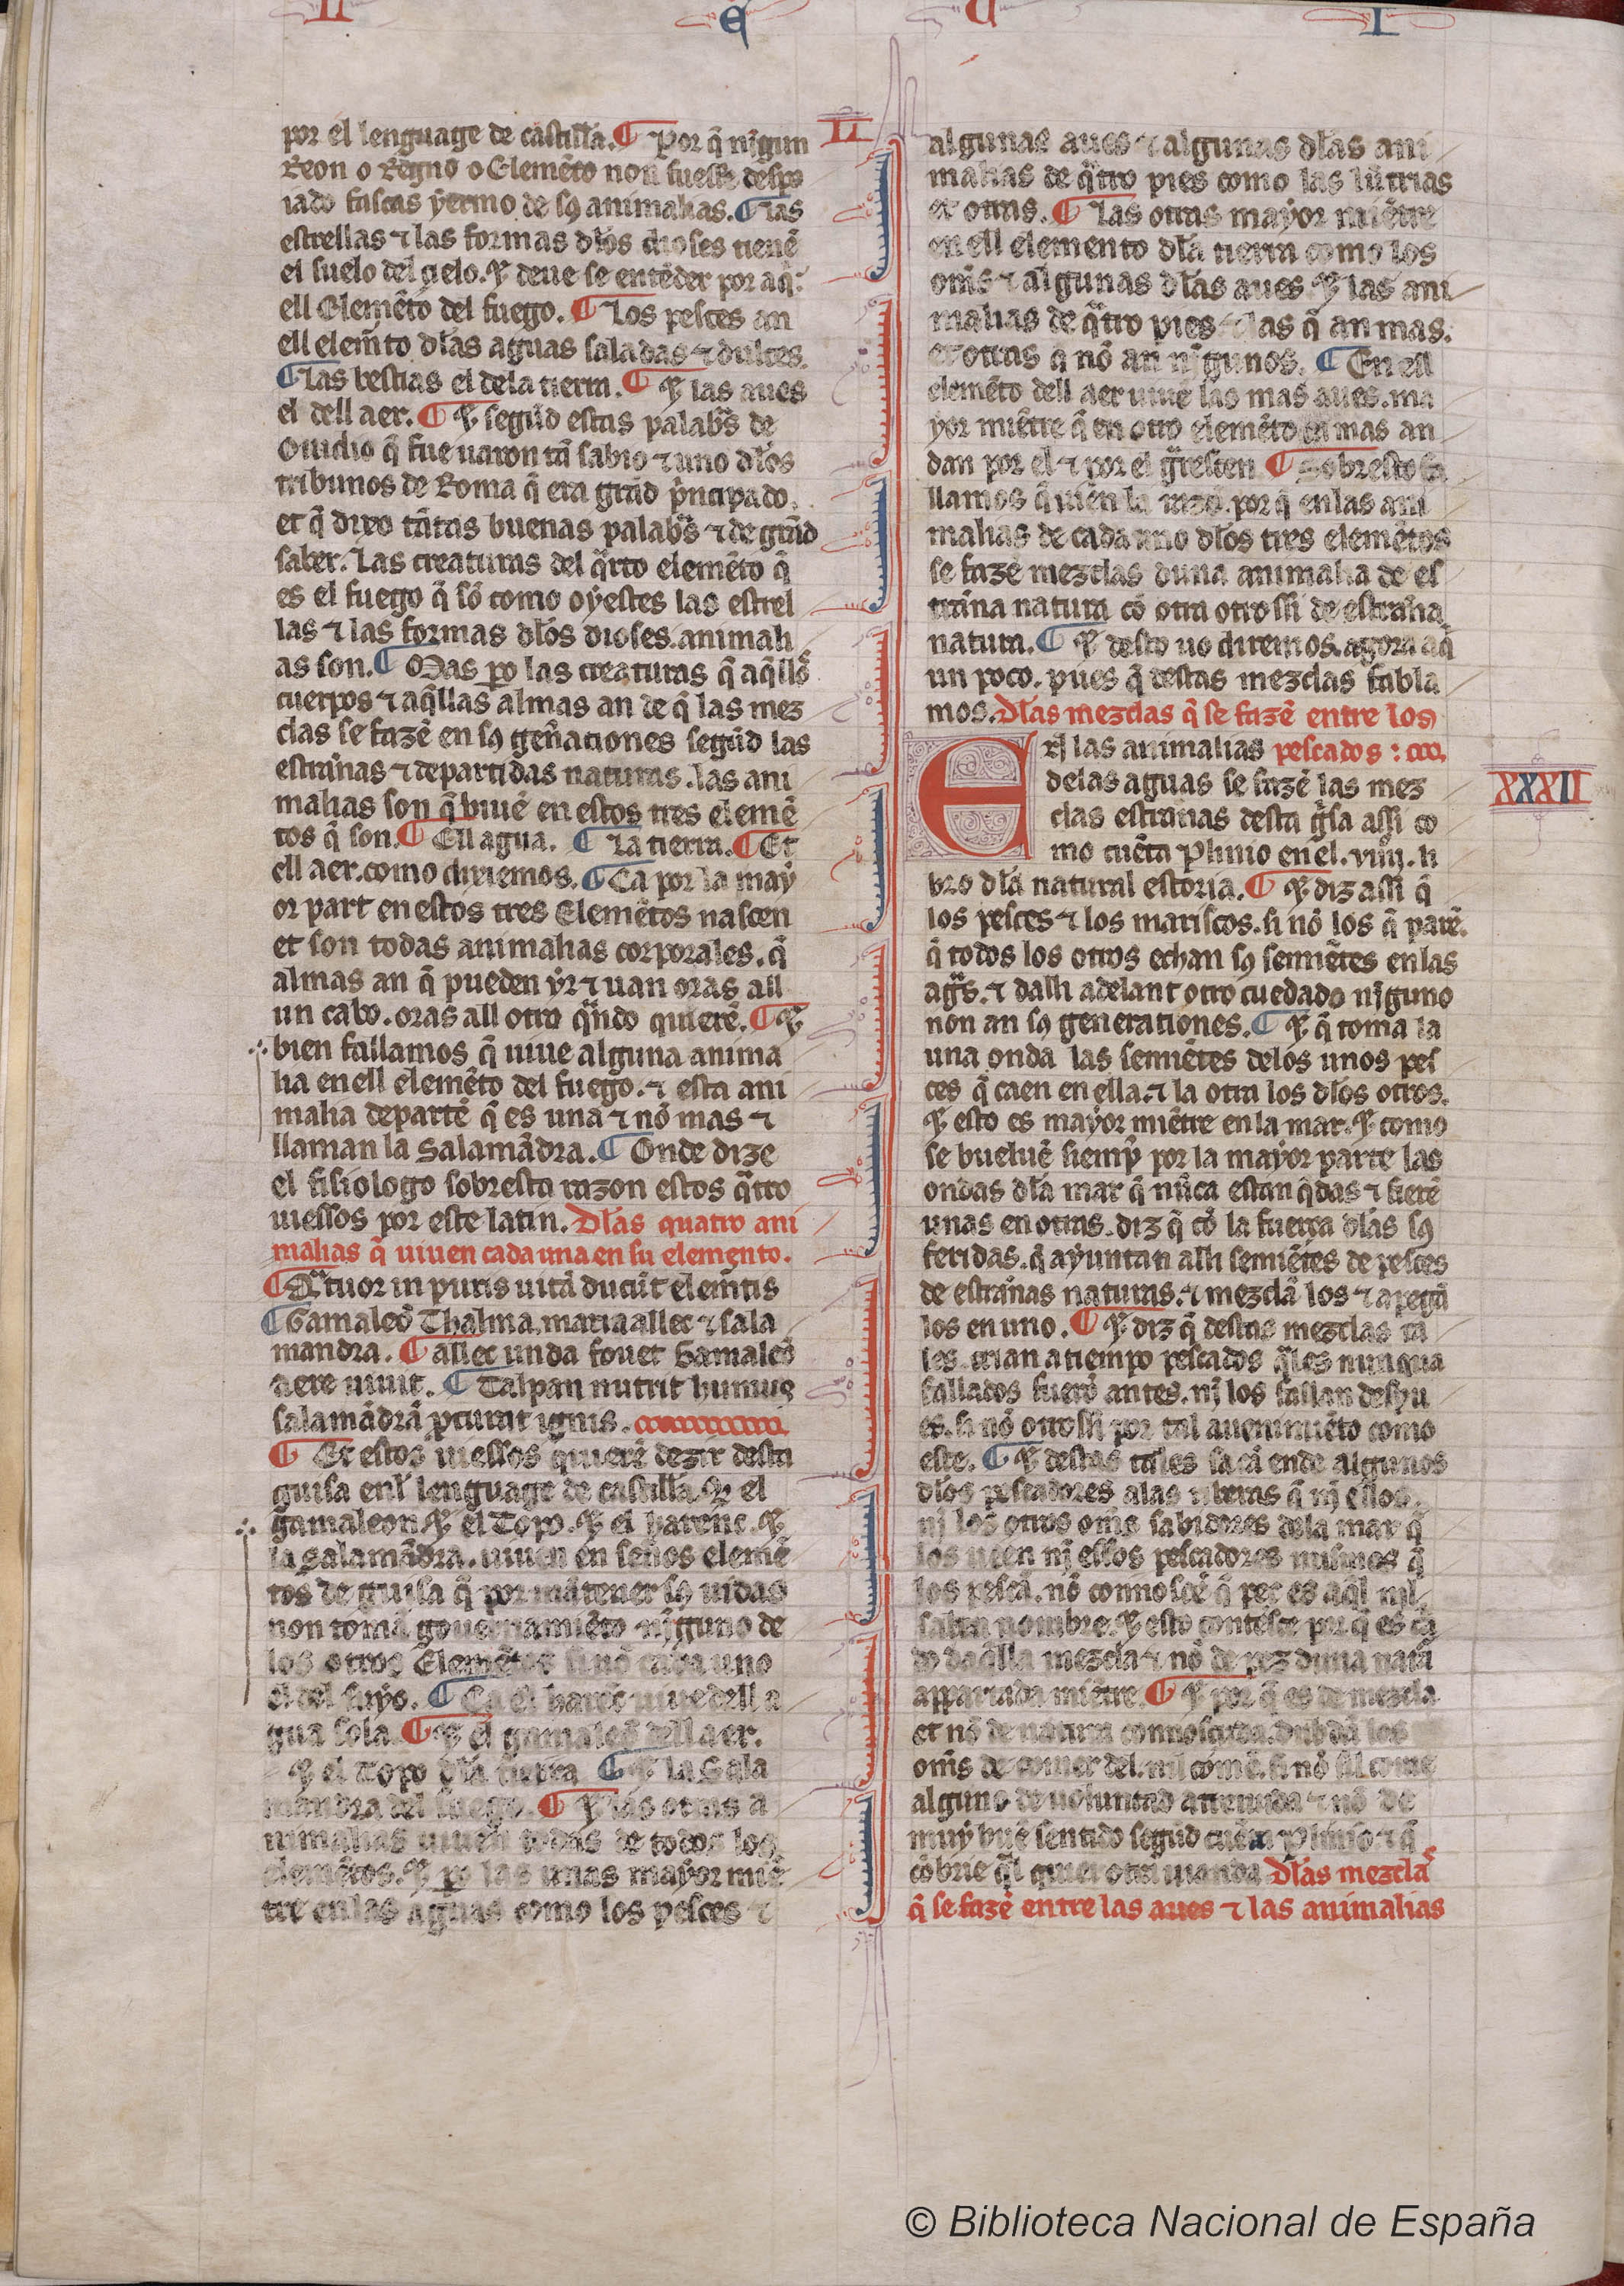 L E U I
por el lenguage de castilla. ¶ Por q̃ nĩgun
Reon o Regno o Elemẽto non fuesse despo
iado fascas yermo de sꝰ animalias. ¶ las
estrellas ⁊ las formas dl̃os dioses tienẽ
el suelo del çielo. ⁊ deue se entẽder por aq̃:
ell Elemẽto del fuego. ¶ Los pesces an
ell elem̃to dl̃as aguas saladas ⁊ dulces.
¶ Las bestias el dela tierra. ¶ ⁊ las aues
el dell aer. ¶ ⁊ segũd estas palab̃s de
Ouidio q̃ fue uaron tã sabio ⁊ uno dl̃os
tribunos de Roma q̃ era grãd p̃ncipado.
et q̃ dixo tãtas buenas palab̃s ⁊ de grãd
saber. Las creaturas del q̃rto elemẽto q̃
es el fuego q̃ sõ como oyestes las estrel
las ⁊ las formas dl̃os dioses. animali
as son. ¶ Mas ꝑo las creaturas q̃ aq̃llos
cuerpos ⁊ aq̃llas almas an de q̃ las mez
clas se fazẽ en sꝰ geñationes segũd las
estrañas ⁊ departidas naturas. las ani
malias son q̃ biuẽ en estos tres elemẽ
tos q̃ son. ¶ Ell agua. ¶ La tierra. ¶ Et
ell aer. como diriemos. ¶ Ca por la may
or part en estos tres Elemẽtos nascen
et son todas animalias corporales. q̃
almas an q̃ pueden yr ⁊ uan oras all
un cabo. oras all otro q̃ndo quierẽ. ¶ ⁊
bien fallamos q̃ uiue alguna anima
lia en ell elemẽto del fuego. ⁊ esta ani
malia departẽ q̃ es una ⁊ nõ mas ⁊
llaman la Salamãdra. ¶ Onde dize
el fisiologo sobresta razon estos q̃tro
uiessos por este latin. Dl̃as quatro ani
malias q̃ uiuen cada una en su elemento.
¶ Q̃tuor in puris uitã ducũt elem̃tis
¶ Gamaleõ Thalma. maria allec ⁊ sala
mandra. ¶ allec unda fouet Gamaleõ
aere uiuit. ¶ Talpan nutrit humus
salamãdrã ꝓcurat ignis.
¶ Et estos uiessos quierẽ dezir desta
guisa enl̃ lenguage de castilla. Qr̃ el
gamaleon. ⁊ el Topo. ⁊ el harenc. ⁊
la Salamãdra. uiuen en seños elemẽ
tos de guisa q̃ por mãtener sꝰ uidas
non tomã gouernamiẽto nĩguno de
los otros Elemẽtos si nõ cada uno
el del suyo. ¶ Ca el harẽc uiue dell a
gua sola. ¶ ⁊ el gamaleõ dell aer.
⁊ el Topo dl̃a tierra ¶ ⁊ la Sala
mandra del fuego. ¶ ⁊ las otras a
nimalias uiuen todas de todos los
elemẽtos. ⁊ ꝑo las unas mayor miẽ
tre enlas aguas como los pesces ⁊
algunas aues ⁊ algunas dl̃as ani
malias de q̃tro pies como las lũtrias
et otras. ¶ Las otras mayor miẽtre
en ell elemento dl̃a tierra como los
om̃s ⁊ algunas dl̃as aues ⁊ las ani
malias de q̃tro pies ⁊ las q̃ an mas.
et otras q̃ nõ an nĩgunos. ¶ En ell
elemẽto dell aer uiuẽ las mas aues. ma
yor miẽtre q̃ en otro elemẽto ca mas an
dan por el ⁊ por el gr̃escen ¶ Sobresto fa
llamos q̃ uien la razõ. por q̃ enlas ani
malias de cada uno dl̃os tres elemẽtos
se fazẽ mezclas duna animalia de es
traña natura cõ otra otrossi de estraña
natura. ¶ ⁊ desto uo diremos. agora aq̃
un poco. pues q̃ destas mezclas fabla
mos. Dl̃as mezclas q̃ se fazẽ entre los
En las animalias pescados:
delas aguas se fazẽ las mez
clas estrañas desta g̃sa assi co
mo cuẽta Plinio enel. viiij. li
bro dl̃a natural estoria. ¶ ⁊ diz assi q̃
los pesces ⁊ los mariscos. si nõ los q̃ parẽ.
q̃ todos los otros echan sꝰ semiẽtes enlas
ag̃s. ⁊ dalli adelant otro cuedado nĩguno
non an sꝰ generationes. ¶ ⁊ q̃ toma la
una onda las semiẽtes delos unos pes
ces q̃ caen en ella. ⁊ la otra los dl̃os otros.
⁊ esto es mayor miẽtre enla mar. ⁊ como
se bueluẽ siemp̃ por la mayor parte las
ondas dl̃a mar q̃ nũca estan q̃das ⁊ fierẽ
unas en otras. diz q̃ cõ la fuerça dl̃as sꝰ
feridas. q̃ ayuntan alli semiẽtes de pesces
de estrañas naturas. ⁊ mezclã los ⁊ apegã
los en uno. ¶ ⁊ diz q̃ destas mezclas ta
les. crian a tiempo pescados q̃les nunqua
fallados fuerõ antes. nĩ los fallan despu
es. si nõ otrossi por tal auenimiẽto como
este. ¶ ⁊ destas tales sacã ende algunos
dl̃os pescadores alas riberas q̃ nĩ ellos.
nĩ los otros om̃s sabidores dela mar q̃
los ueen nĩ essos pescadores mismos q̃
los pescã. nõ connoscẽ q̃ pez es aq̃l nil
saben nombre. ⁊ esto contesce por q̃ es cã
do daq̃lla mezcla ⁊ nõ de pez duna natã
appartada miẽtre. ¶ ⁊ por q̃ es de mezcla
et nõ de natura connosçuda. dubdã los
om̃s de comer del. nil cõmẽ. si nõ sil come
alguno de uoluntad atreuuda ⁊ nõ de
muy buẽ sentido segũd cuẽta Plinio ⁊ q̃
cõbrie q̃l quier otra uianda Dl̃as mezclas
q̃ se fazẽ entre las aues ⁊ las animalias
XXXII
© Biblioteca Nacional de España